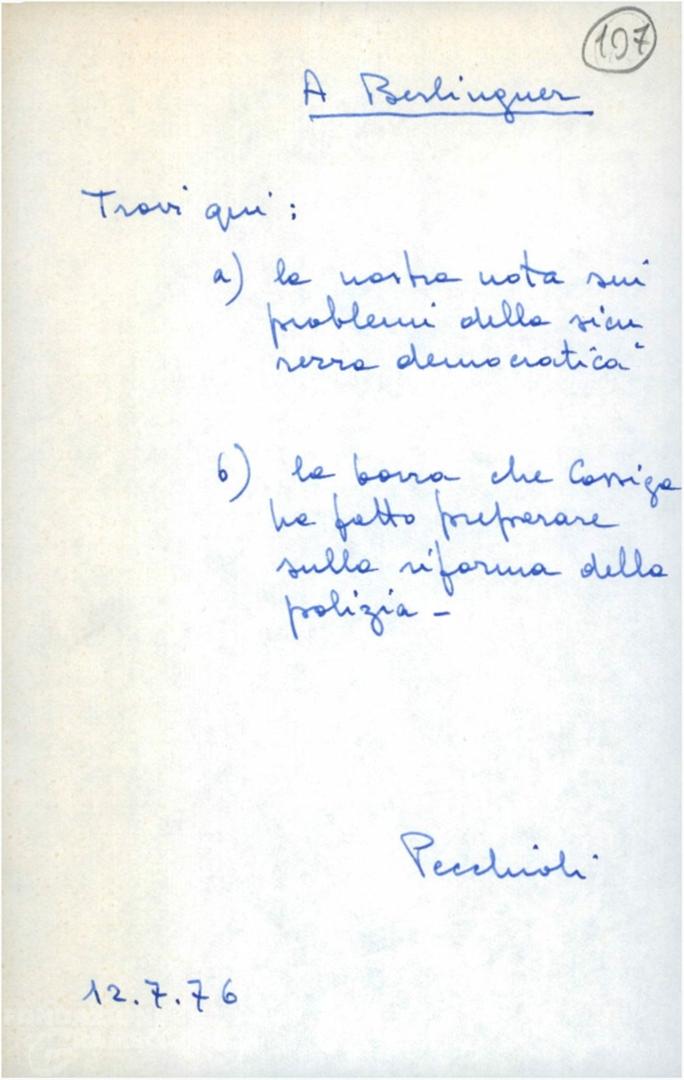 107
A Berlinguer
Trovi qui:
a) la nostra nota sui
problemi della sicu
rezza democratica"
b) la bozza che Cossiga
ha fatto preparare
sulla riforma della
polizia -
Pecchioli
12.7.76